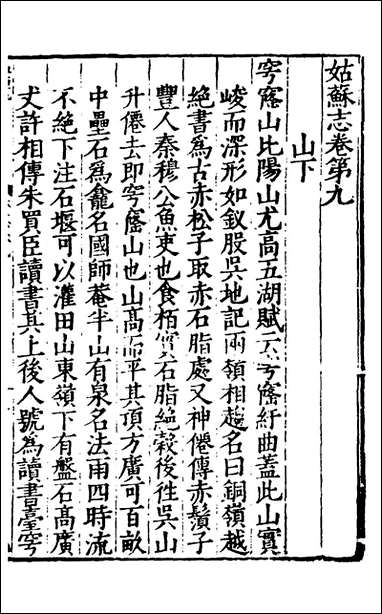 姑蘇志卷第九
山下
穹窿山比陽山尤高五湖賦云穹窿紆曲蓋此山實
峻而深形如釵股吳地記兩嶺相趨名曰銅嶺越
絕書爲古赤松子取赤石脂處又神僊傳赤鬚子
豐人秦穆公魚吏也食栢實石脂絕穀後徃吳山
升僊去即穹窿山也山髙而平其頂方廣可百畝
中壘石爲龕名國師菴半山有泉名法雨四時流
不絕下注石堰可以灌田山東嶺下有盤石髙廣
丈許相傳朱買臣讀書其上後人號爲讀書臺穹